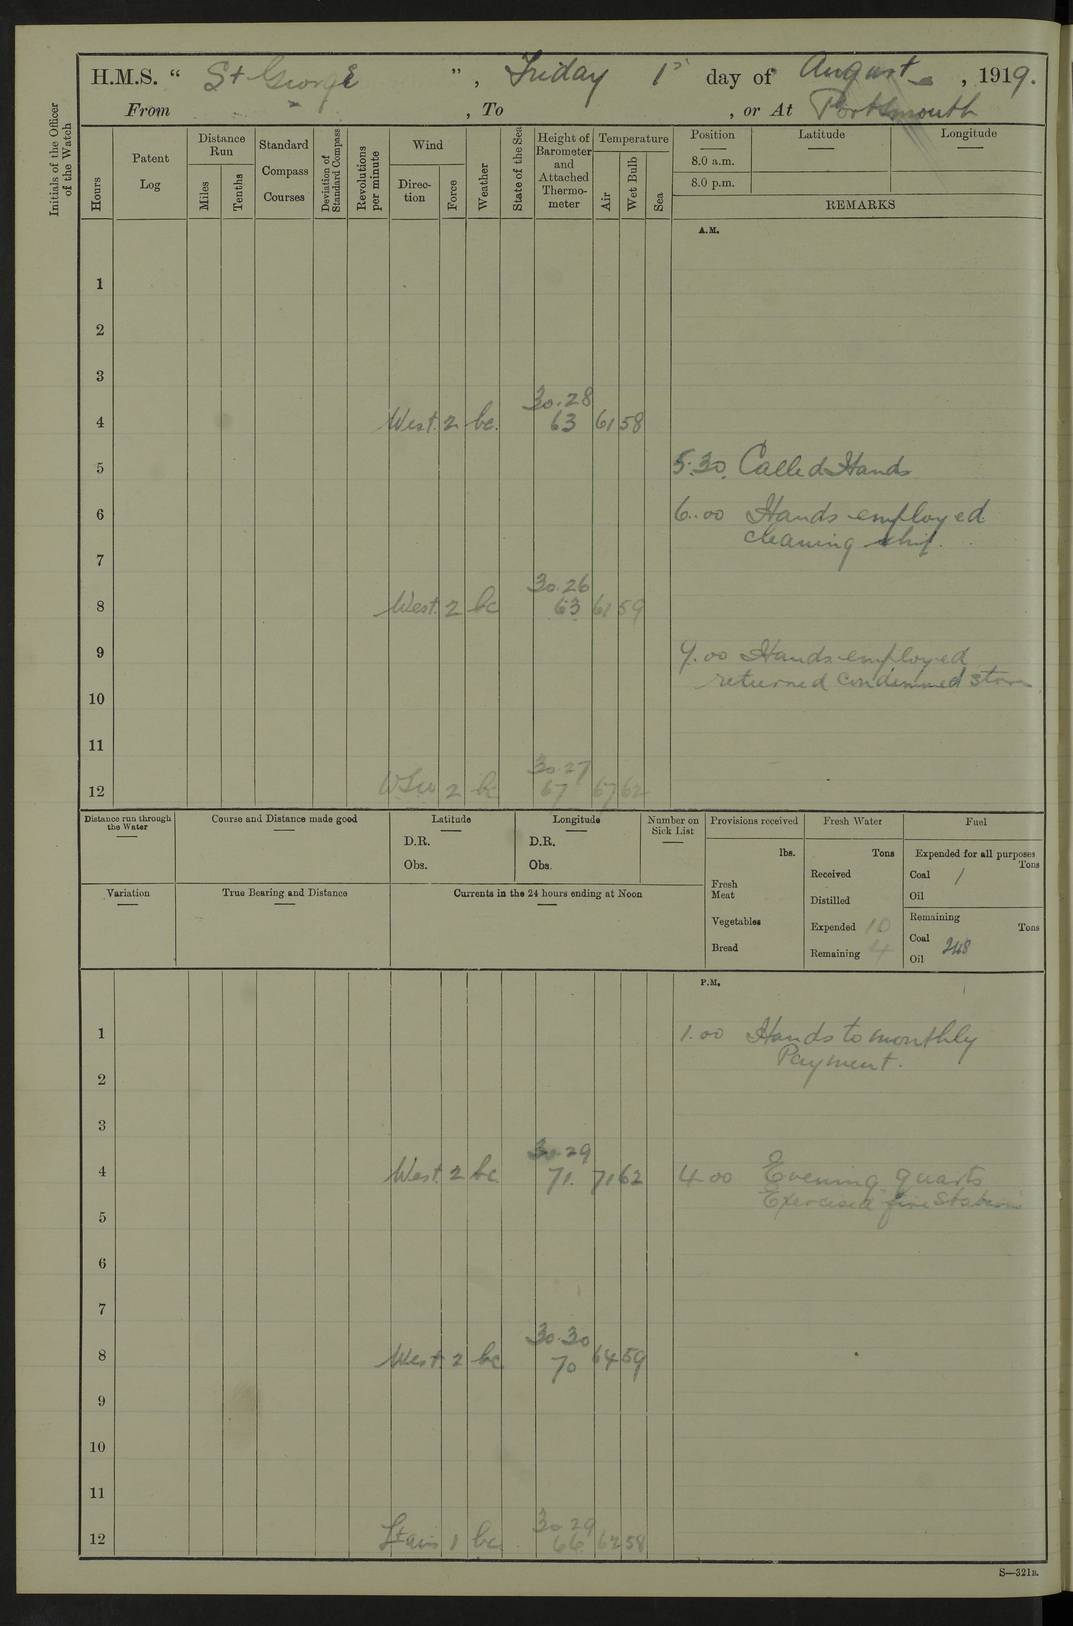 H.M.S. “ St George ”, Friday 1st day of August, 1919.
From , To , or At Portsmouth
Initials of the Officer of the Watch
Hours
Patent Log
Distance Run
Miles
Tenths
Standard Compass Courses
Deviation of Standard Compass
Revolutions per minute
Wind
Direction
Force
Weather
State of the Sea
Height of Barometer and Attached Thermometer
Temperature
Air
Wet Bulb
Sea
Position
8.0 a.m.
8.0 p.m.
Latitude
Longitude
REMARKS
A.M.
1
2
3
30.28
4 West. 2 bc. 63 61 58
5 5.30. Called Hands
6 6.00 Hands employed
cleaning ship.
7
30.26
8 West. 2 bc 63 61 59
9 9.00 Hands employed
returned condemned stores
10
11
30.27
12 WSW 2 bc 67 67 62
Distance run through the Water
Course and Distance made good
Latitude
D.R.
Obs.
Longitude
D.R.
Obs.
Number on Sick List
Variation
True Bearing and Distance
Currents in the 24 hours ending at Noon
Provisions received
lbs.
Fresh Meat
Vegetables
Bread
Fresh Water
Tons
Received
Distilled
Expended 10
Remaining 4
Fuel
Expended for all purposes
Tons
Coal 1
Oil
Remaining
Tons
Coal 248
Oil
P.M.
1 1.00 Hands to monthly
Payment.
2
3
30.29
4 West. 2 bc. 71. 71 62 4.00 Evening quarts
Exercised fire Stations
5
6
7
30.30
8 West 2 bc 70 64 59
9
10
11
30.29
12 1 bc. 66 62 58
S—321B.